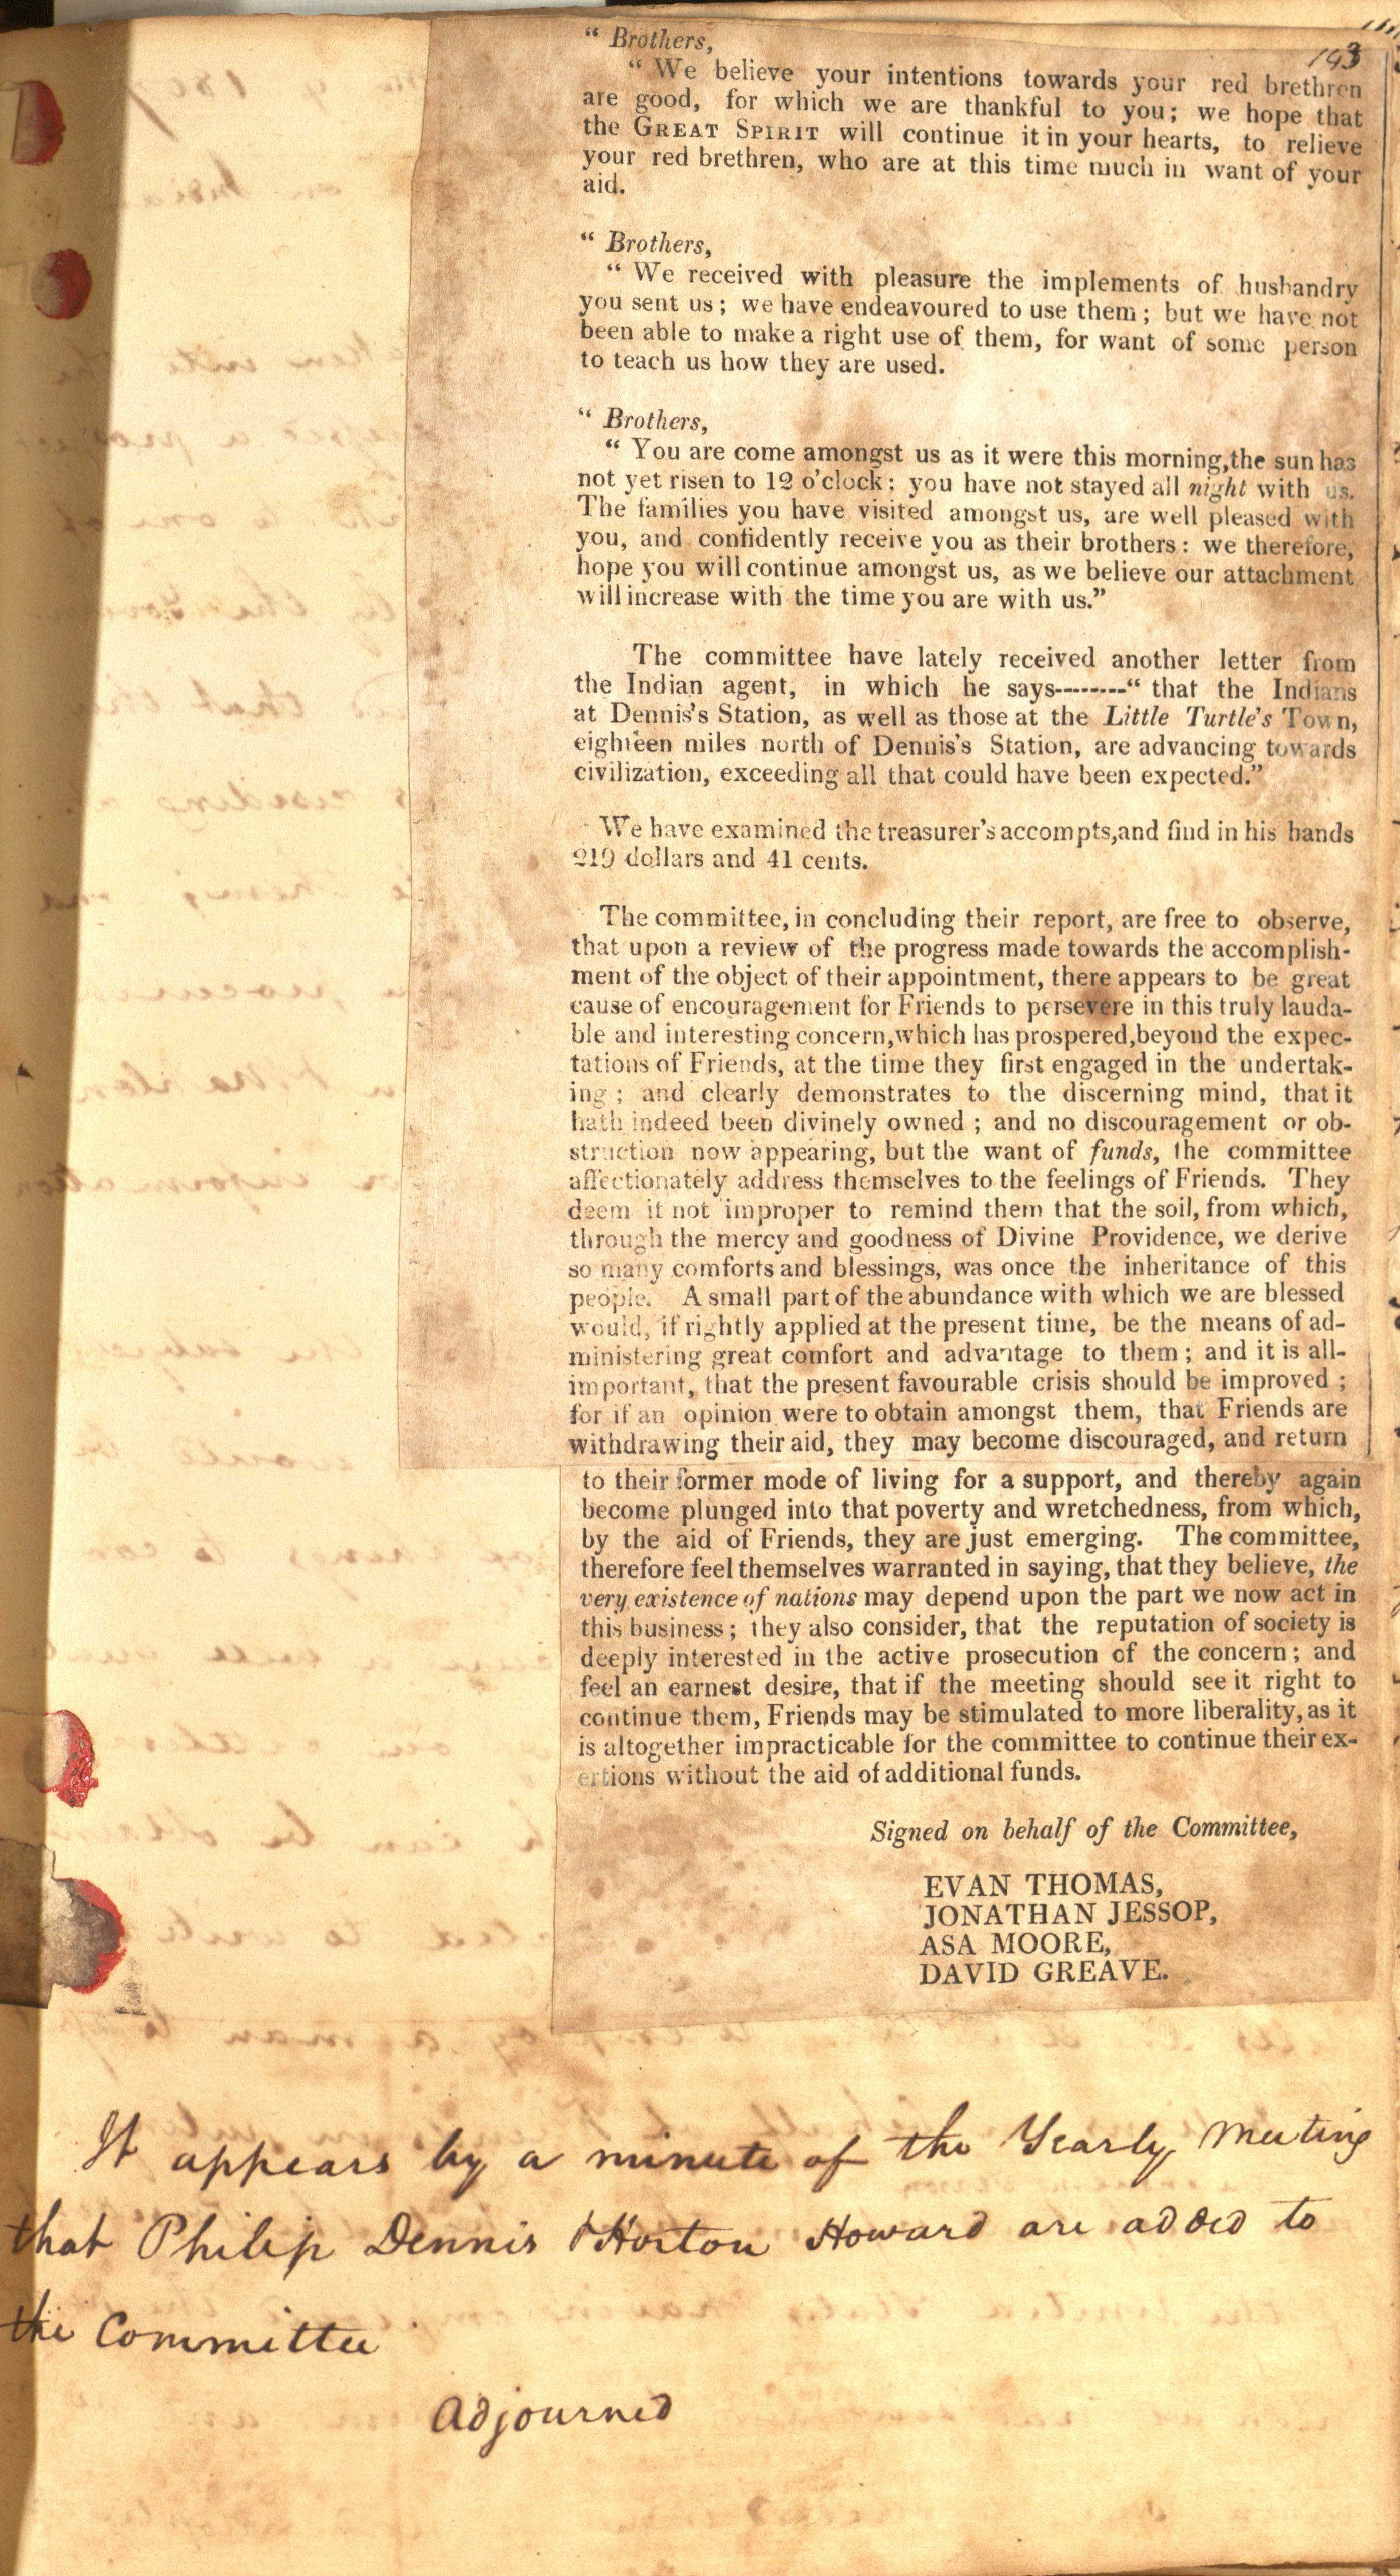 193
" Brothers,
" We believe your intentions towards your red brethren
are good, for which we are thankful to you; we hope that
the GREAT SPIRIT will continue it in your hearts, to relieve
your red brethren, who are at this time much in want of your
aid.
" Brothers,
" We received with pleasure the implements of husbandry
you sent us; we have endeavoured to use them; but we have not
been able to make a right use of them, for want of some person
to teach us how they are used.
" Brothers,
" You are come amongst us as it were this morning, the sun has
not yet risen to 12 o'clock; you have not stayed all night with us.
The families you have visited amongst us, are well pleased with
you, and confidently receive you as their brothers: we therefore,
hope you will continue amongst us, as we believe our attachment
will increase with the time you are with us."
The committee have lately received another letter from
the Indian agent, in which he says--------" that the Indians
at Dennis's Station, as well as those at the Little Turtle's Town,
eighteen miles north of Dennis's Station, are advancing towards
civilization, exceeding all that could have been expected."
We have examined the treasurer's accompts, and find in his hands
219 dollars and 41 cents.
The committee, in concluding their report, are free to observe,
that upon a review of the progress made towards the accomplish-
ment of the object of their appointment, there appears to be great
cause of encouragement for Friends to persevere in this truly lauda-
ble and interesting concern, which has prospered, beyond the expec-
tations of Friends, at the time they first engaged in the undertak-
ing; and clearly demonstrates to the discerning mind, that it
hath indeed been divinely owned; and no discouragement or ob-
struction now appearing, but the want of funds, the committee
affectionately address themselves to the feelings of Friends. They
deem it not improper to remind them that the soil, from which,
through the mercy and goodness of Divine Providence, we derive
so many comforts and blessings, was once the inheritance of this
people. A small part of the abundance with which we are blessed
would, if rightly applied at the present time, be the means of ad-
ministering great comfort and advantage to them; and it is all-
important, that the present favourable crisis should be improved;
for if an opinion were to obtain amongst them, that Friends are
withdrawing their aid, they may become discouraged, and return
to their former mode of living for a support, and thereby again
become plunged into that poverty and wretchedness, from which,
by the aid of Friends, they are just emerging. The committee,
therefore feel themselves warranted in saying, that they believe, the
very existence of nations may depend upon the part we now act in
this business; they also consider, that the reputation of society is
deeply interested in the active prosecution of the concern; and
feel an earnest desire, that if the meeting should see it right to
continue them, Friends may be stimulated to more liberality, as it
is altogether impracticable for the committee to continue their ex-
ertions without the aid of additional funds.
Signed on behalf of the Committee,
EVAN THOMAS,
JONATHAN JESSOP,
ASA MOORE,
DAVID GREAVE.
It appears by a minute of the Yearly Meeting
that Philip Dennis & Horton Howard are added to
the Committee
Adjourned